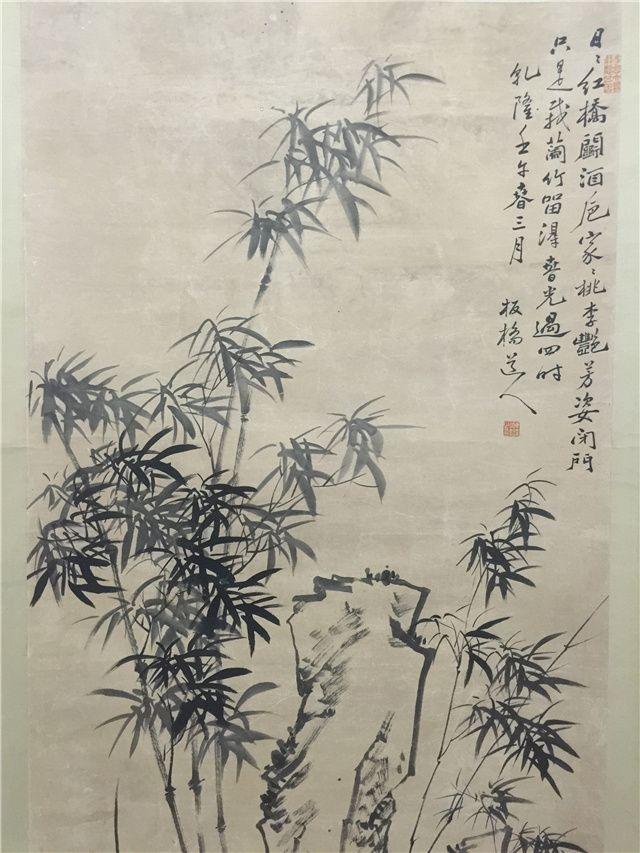 日〻紅橋鬭酒卮家〻桃李豔芳姿閉門
只是栽蘭竹畱淂春光過四时
乾隆壬午春三月 板橋道人